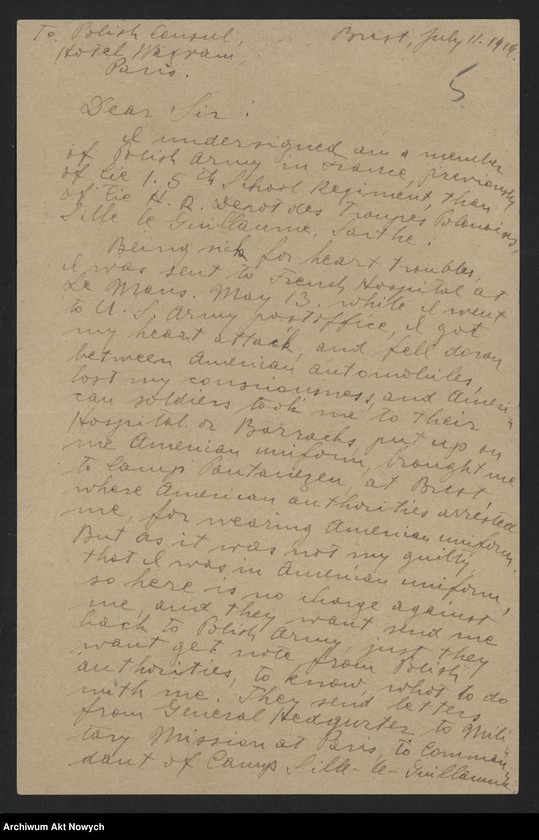 To Polish Consul,
Hotel Wagram,
Paris.
Brest, July 11. 1919.
5
Dear Sir!
I undersigned am a member
of Polish Army in France, previously
of tie 1. 5th School Regiment, than
of tie H. R. Depot des Troupes Polonaises,
Sille le Guillaume, Sarthe.
Being sick for heart troubles,
I was sent to French Hospital at
Le Mans. May 13. while I went
to U. S. Army postoffice, I got
my heart attack, and fell down
between American automobiles,
lost my consciousness, and Ameri-
can soldiers took me to their
Hospital or Barracks, put up on
me American uniform, brought me
to Camp Pontanezen, at Brest,
where American authorities arrested
me, for wearing American uniform.
But as it was not my guilty,
that I was in American uniform,
so here is no charge against
me, and they want send me
back to Polish Army, just they
want get note from Polish
authorities, to know, what to do
with me. They send letters
from General Hedqurter to Mili-
tary Mission at Paris, to Commen-
dant of Camp Sille-le-Guillaume
Archiwum Akt Nowych